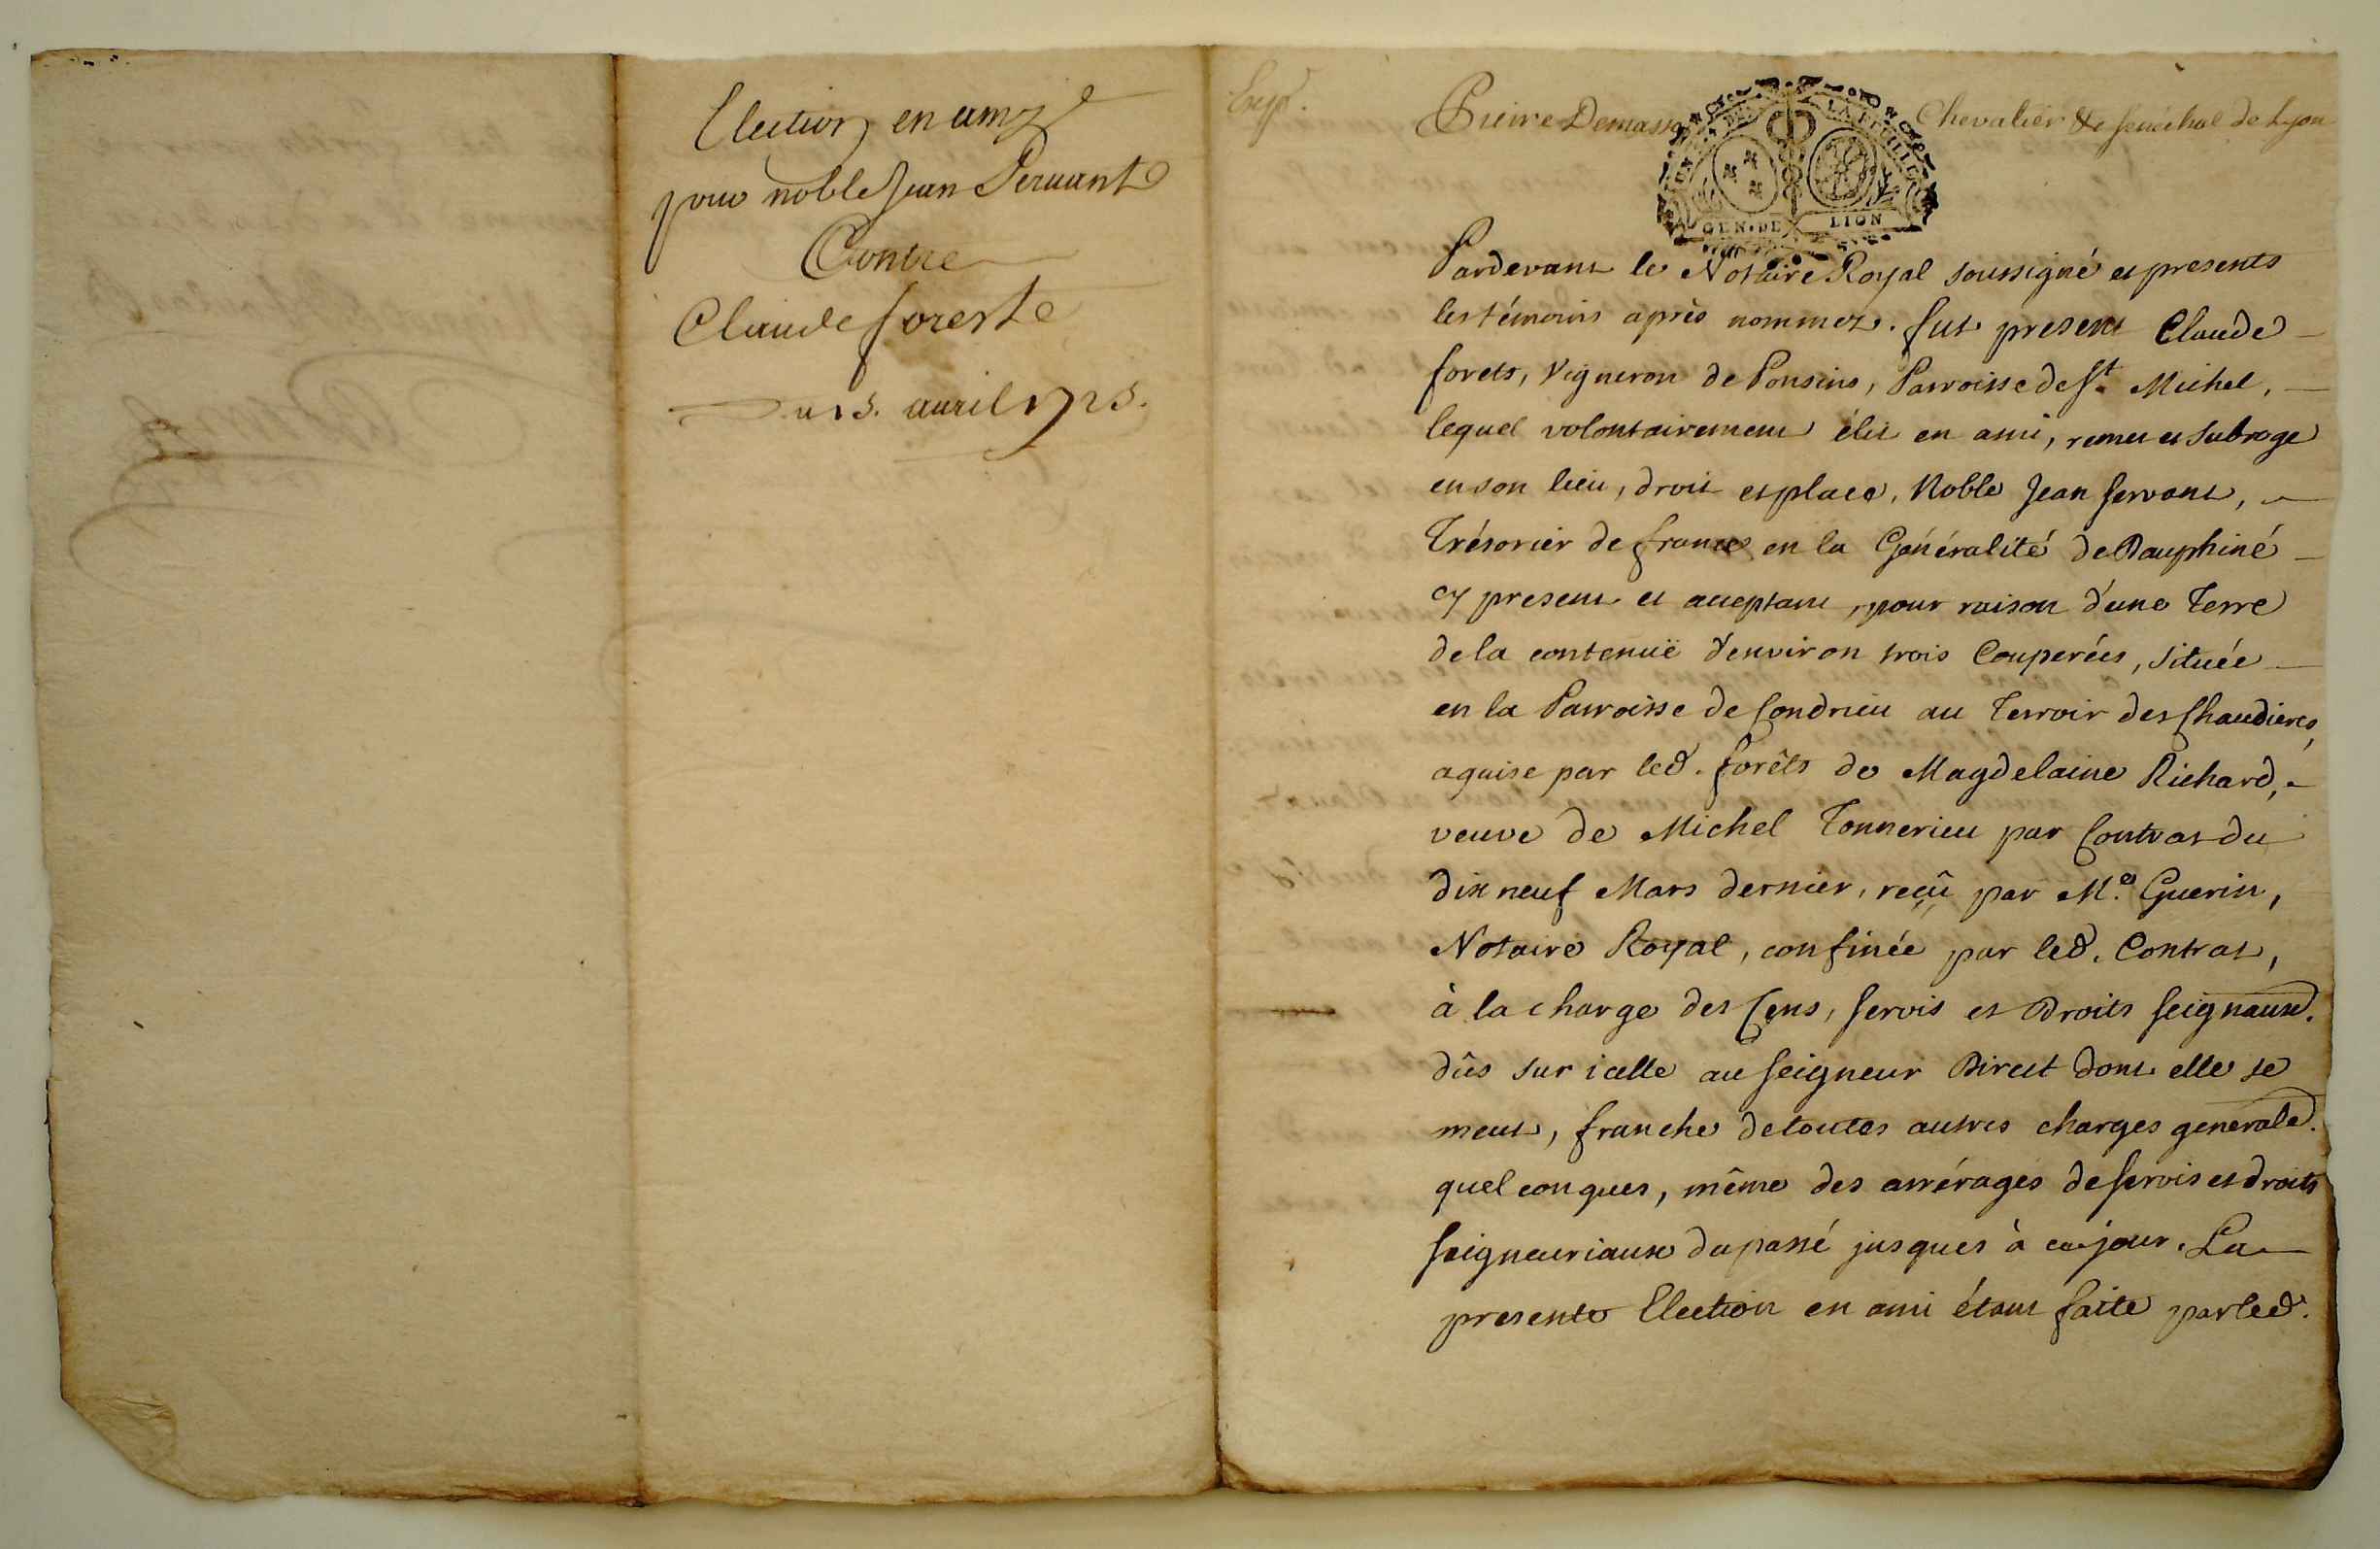 Election en amy
pour noble Jean Servant
Contre
Claude foreste
Du 15. auril 1725.
Exp.
Pierre Demasso Chevalier & senechal de Lyon
LA FEUILLE
GEN·DE LION
Pardevant le Notaire Royal soussigné et presents
les témoins après nommez. fut present Claude
forets, Vigneron de Ponsins, Parroisse de St. Michel,
lequel volontairement élit en ami, remet et subroge
en son lieu, droit et place, Noble Jean Servant,
Trésorier de france en la Généralité de Dauphiné
cy present et acceptant, pour raison d'une Terre
de la contenuë d'environ trois Couperées, située
en la Parroisse de Condrieu au Terroir des Chaudieres,
aquise par led. forêts de Magdelaine Richard,
veuve de Michel Tonnerieu par Contrat du
dix neuf Mars dernier, reçû par Me. Guerin,
Notaire Royal, confinée par led. Contrat,
à la charge des Cens, servis et Droits seignaux.
dûs sur icelle au seigneur Direct dont elle se
meut, franche de toutes autres charges generale.
quelconques, même des arrérages de servis et droits
seigneuriaux du passé jusques à ce jour. La
presente Election en ami étant faite par led.